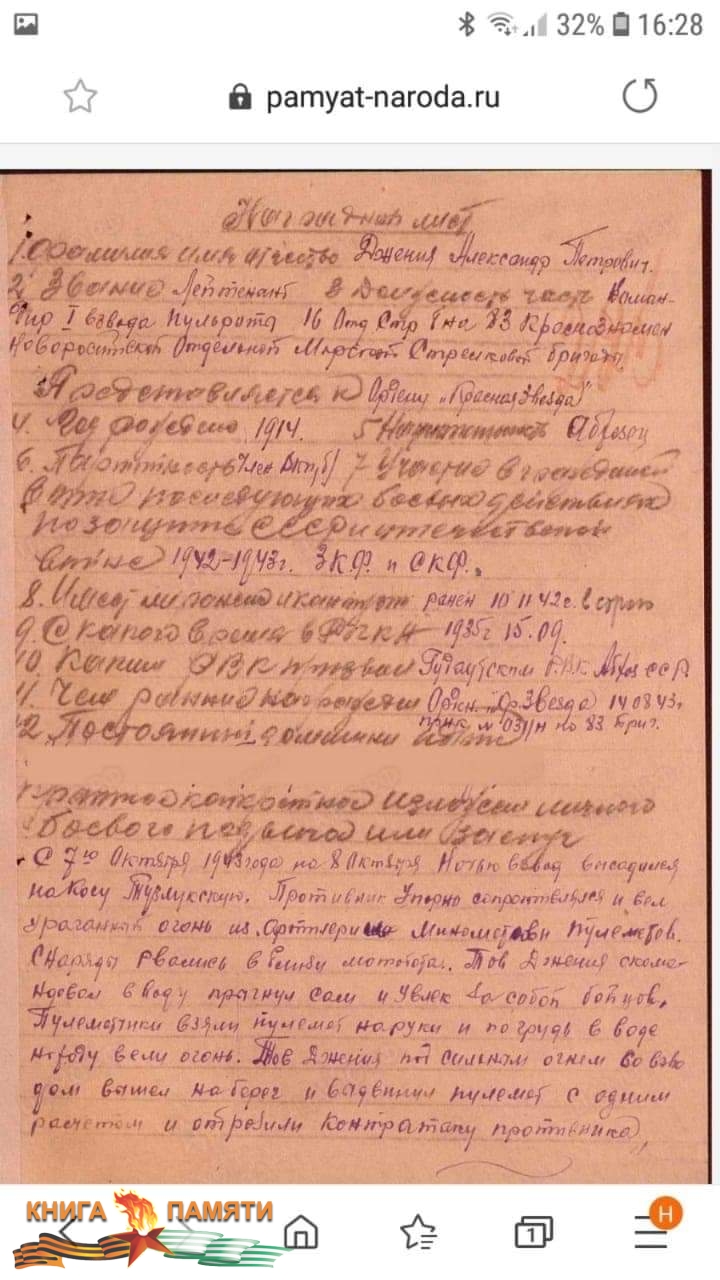 32% 16:28
pamyat-naroda.ru
Наградной лист
1. Фамилия имя отчество Джения Александр Петрович.
2. Звание Лейтенант 3 Должность часть Коман-
дир I взвода пульрота 16 Отд Стр б-на 83 Краснознамен
Новороссийской Отдельной Морской Стрелковой бригады
Представляется к Ордену "Красная Звезда"
4. Год рождения 1914. 5 Национальность Абхазец
6. Партийность член ВКП(б) 7 Участие в гражданской
войне последующих боевых действиях
по защите СССР и отечественной
войне 1942-1943г. ЗКФ. и СКФ.
8. Имеет ли ранения и контузии ранен 10 11 42г. в строю
9. С какого времени в РККА 1935г 15.09.
10. Каким РВК призван Гудаутским Р.В.К. Абхаз ССР
11. Чем ранние награжден Орден. "Кр Звезда 14 08 43г
прик. № 03/н по 83 бриг.
12. Постоянный домашний
Краткое конкретное изложение личного
боевого подвига или заслуг
С 7го Октября 1943 года на 8 Октября Ночью взвод высадился
на Косу Тузлукскую. Противник Упорно сопротивлялся и вел
ураганный огонь из Артилерии Минометов и Пулеметов.
Снаряды рвались в близи мотобота. Тов Джения скома-
ндовал в воду прыгнул сам и Увлек за собой бойцов.
Пулеметчики взяли пулемет на руки и по грудь в воде
на ходу вели огонь. Тов Джения под сильным огнем со взво
дом вышел на берег и выдвинул пулемет с одним
расчетом и отробили Контратаку противника
КНИГА ПАМЯТИ
1
Н